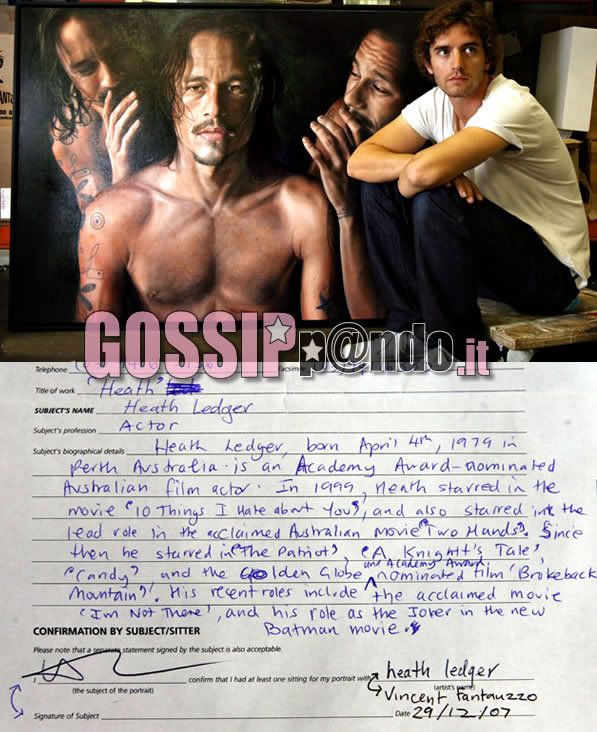 GOSSIPp@ndo.it
Telephone
facsimile
Title of work 'Heath'
SUBJECT'S NAME Heath Ledger
Subject's profession Actor
Subject's biographical details Heath Ledger, born April 4th, 1979 in
Perth Australia. is an Academy Award-nominated
Australian film actor. In 1999, Heath starred in the
movie "10 Things I Hate about You", and also starred in the
lead role in the acclaimed Australian movie "Two Hands". Since
then he starred in "The Patriot", "A Knight's Tale",
and Academy Award
"Candy" and the Golden Globe nominated film 'Brokeback
Mountain'. His recent roles include the acclaimed movie
'I'm Not There', and his role as the Joker in the new
CONFIRMATION BY SUBJECT/SITTER Batman movie.
Please note that a separate statement signed by the subject is also acceptable.
I confirm that I had at least one sitting for my portrait with heath ledger
(the subject of the portrait) (artist's name)
Vincent Fantauzzo
Signature of Subject Date 29/12/07